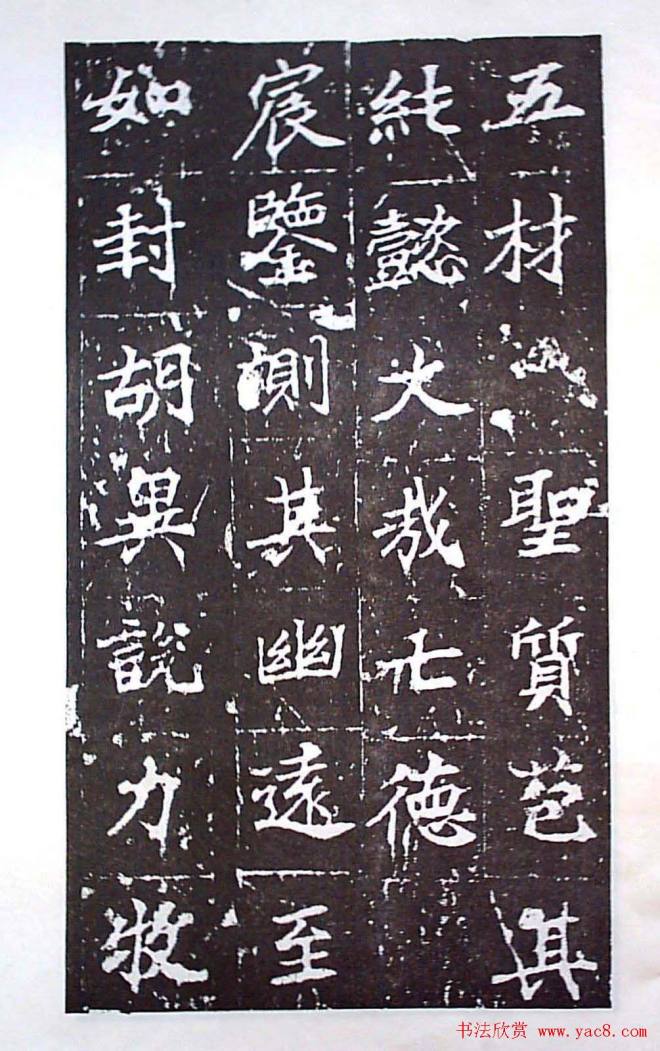 五材聖質苞其
純懿大哉七德
宸鑒測其幽遠至
如封胡異說力牧
书法欣赏 www.yac8.com